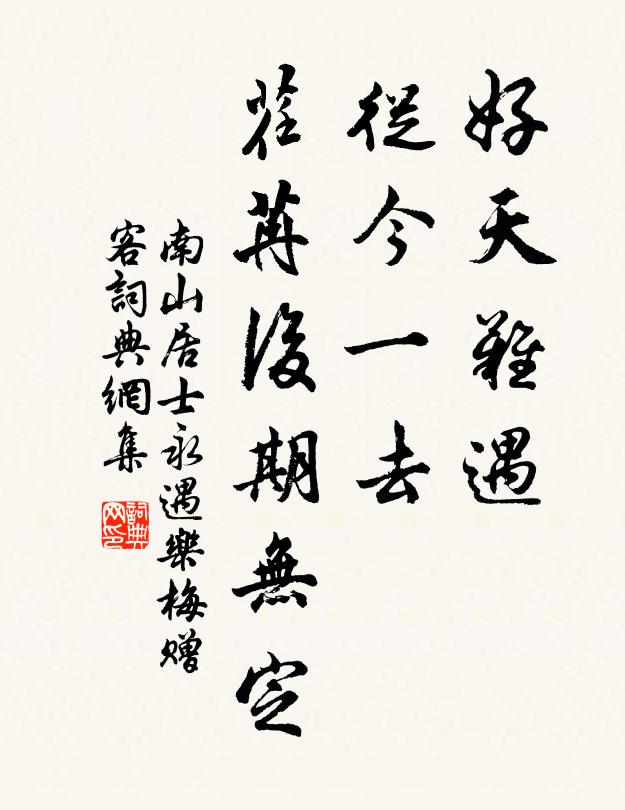 好天難遇
從今一去
荏苒後期無定
南山居士永遇樂梅贈
客詞典網集
詞典网印